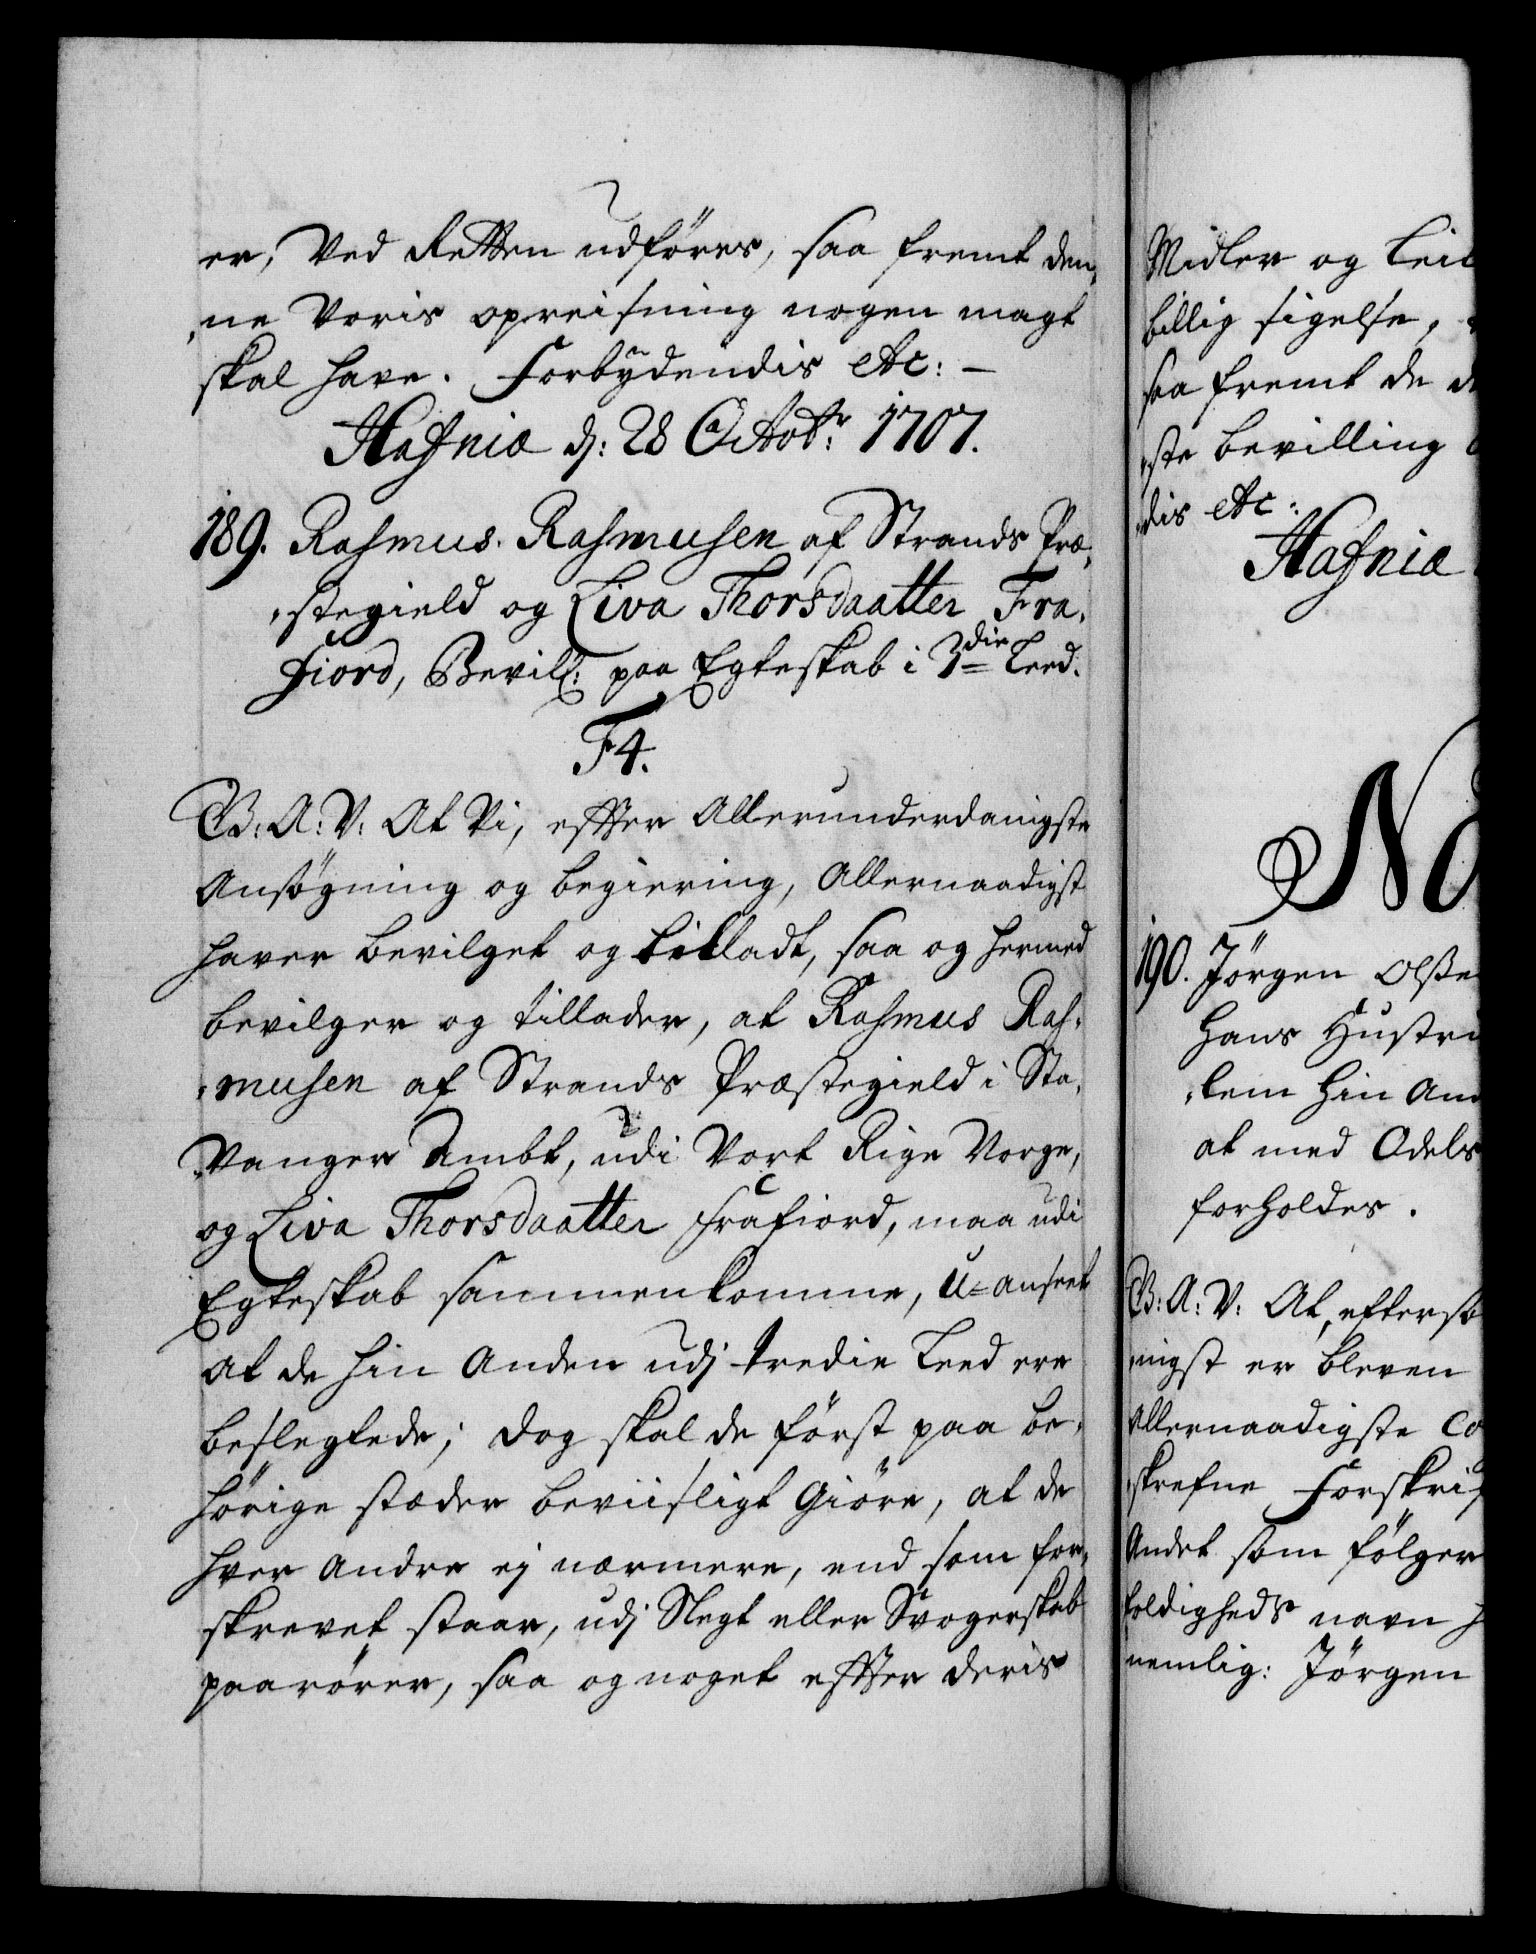 er, ved Retten udföres, saa fremt den,
,ne Voris opreisning nogen magt
skal have. Forbÿdendis etc: –
Hafniæ dj: 28 Octobr: 1707.
189. Rasmus Rasmusen af Strands Præ,
,stegield og Liva Thorsdaatter Fra,
fiord, Bevill: paa Egteskab i 3die Leed.
F4.
G: A: V: At Vi, effter Allerunderdanigste
Ansøgning og begiering, Allernaadigst
haver bevilget og tilladt, saa og hermed
bevilger og tillader, at Rasmus Ras,
,musen af Strands Præstegield i Sta,
,vanger Ambt, udi Vort Rige Norge,
og Liva Thorsdaatter Frafiord, maa udi
Egteskab sammenkomme, U=anseet
at de hin Anden udj tredie Leed ere
beslegtede; dog skal de först paa be,
hörige stæder beviisligt Giöre, at de
hver andre ej nærmere, end som for,
skrevet staar, udj Slegt eller Svogerskab
paarörer, saa og noget effter deris
Midler og Leil
billig sigelse,
saa fremt de d
,ste bevilling
,dis etc:
Hafniæ
No
190. Jörgen Olße
Hans Hustru
,lem hin And
at med Odels
forholdes.
G: A: V: At, eftersom
,nigst er bleven
Allernaadigste Co
,skrefne Forskrif
Andet som fölger
foldigheds navn H
nemlig: Jörgen